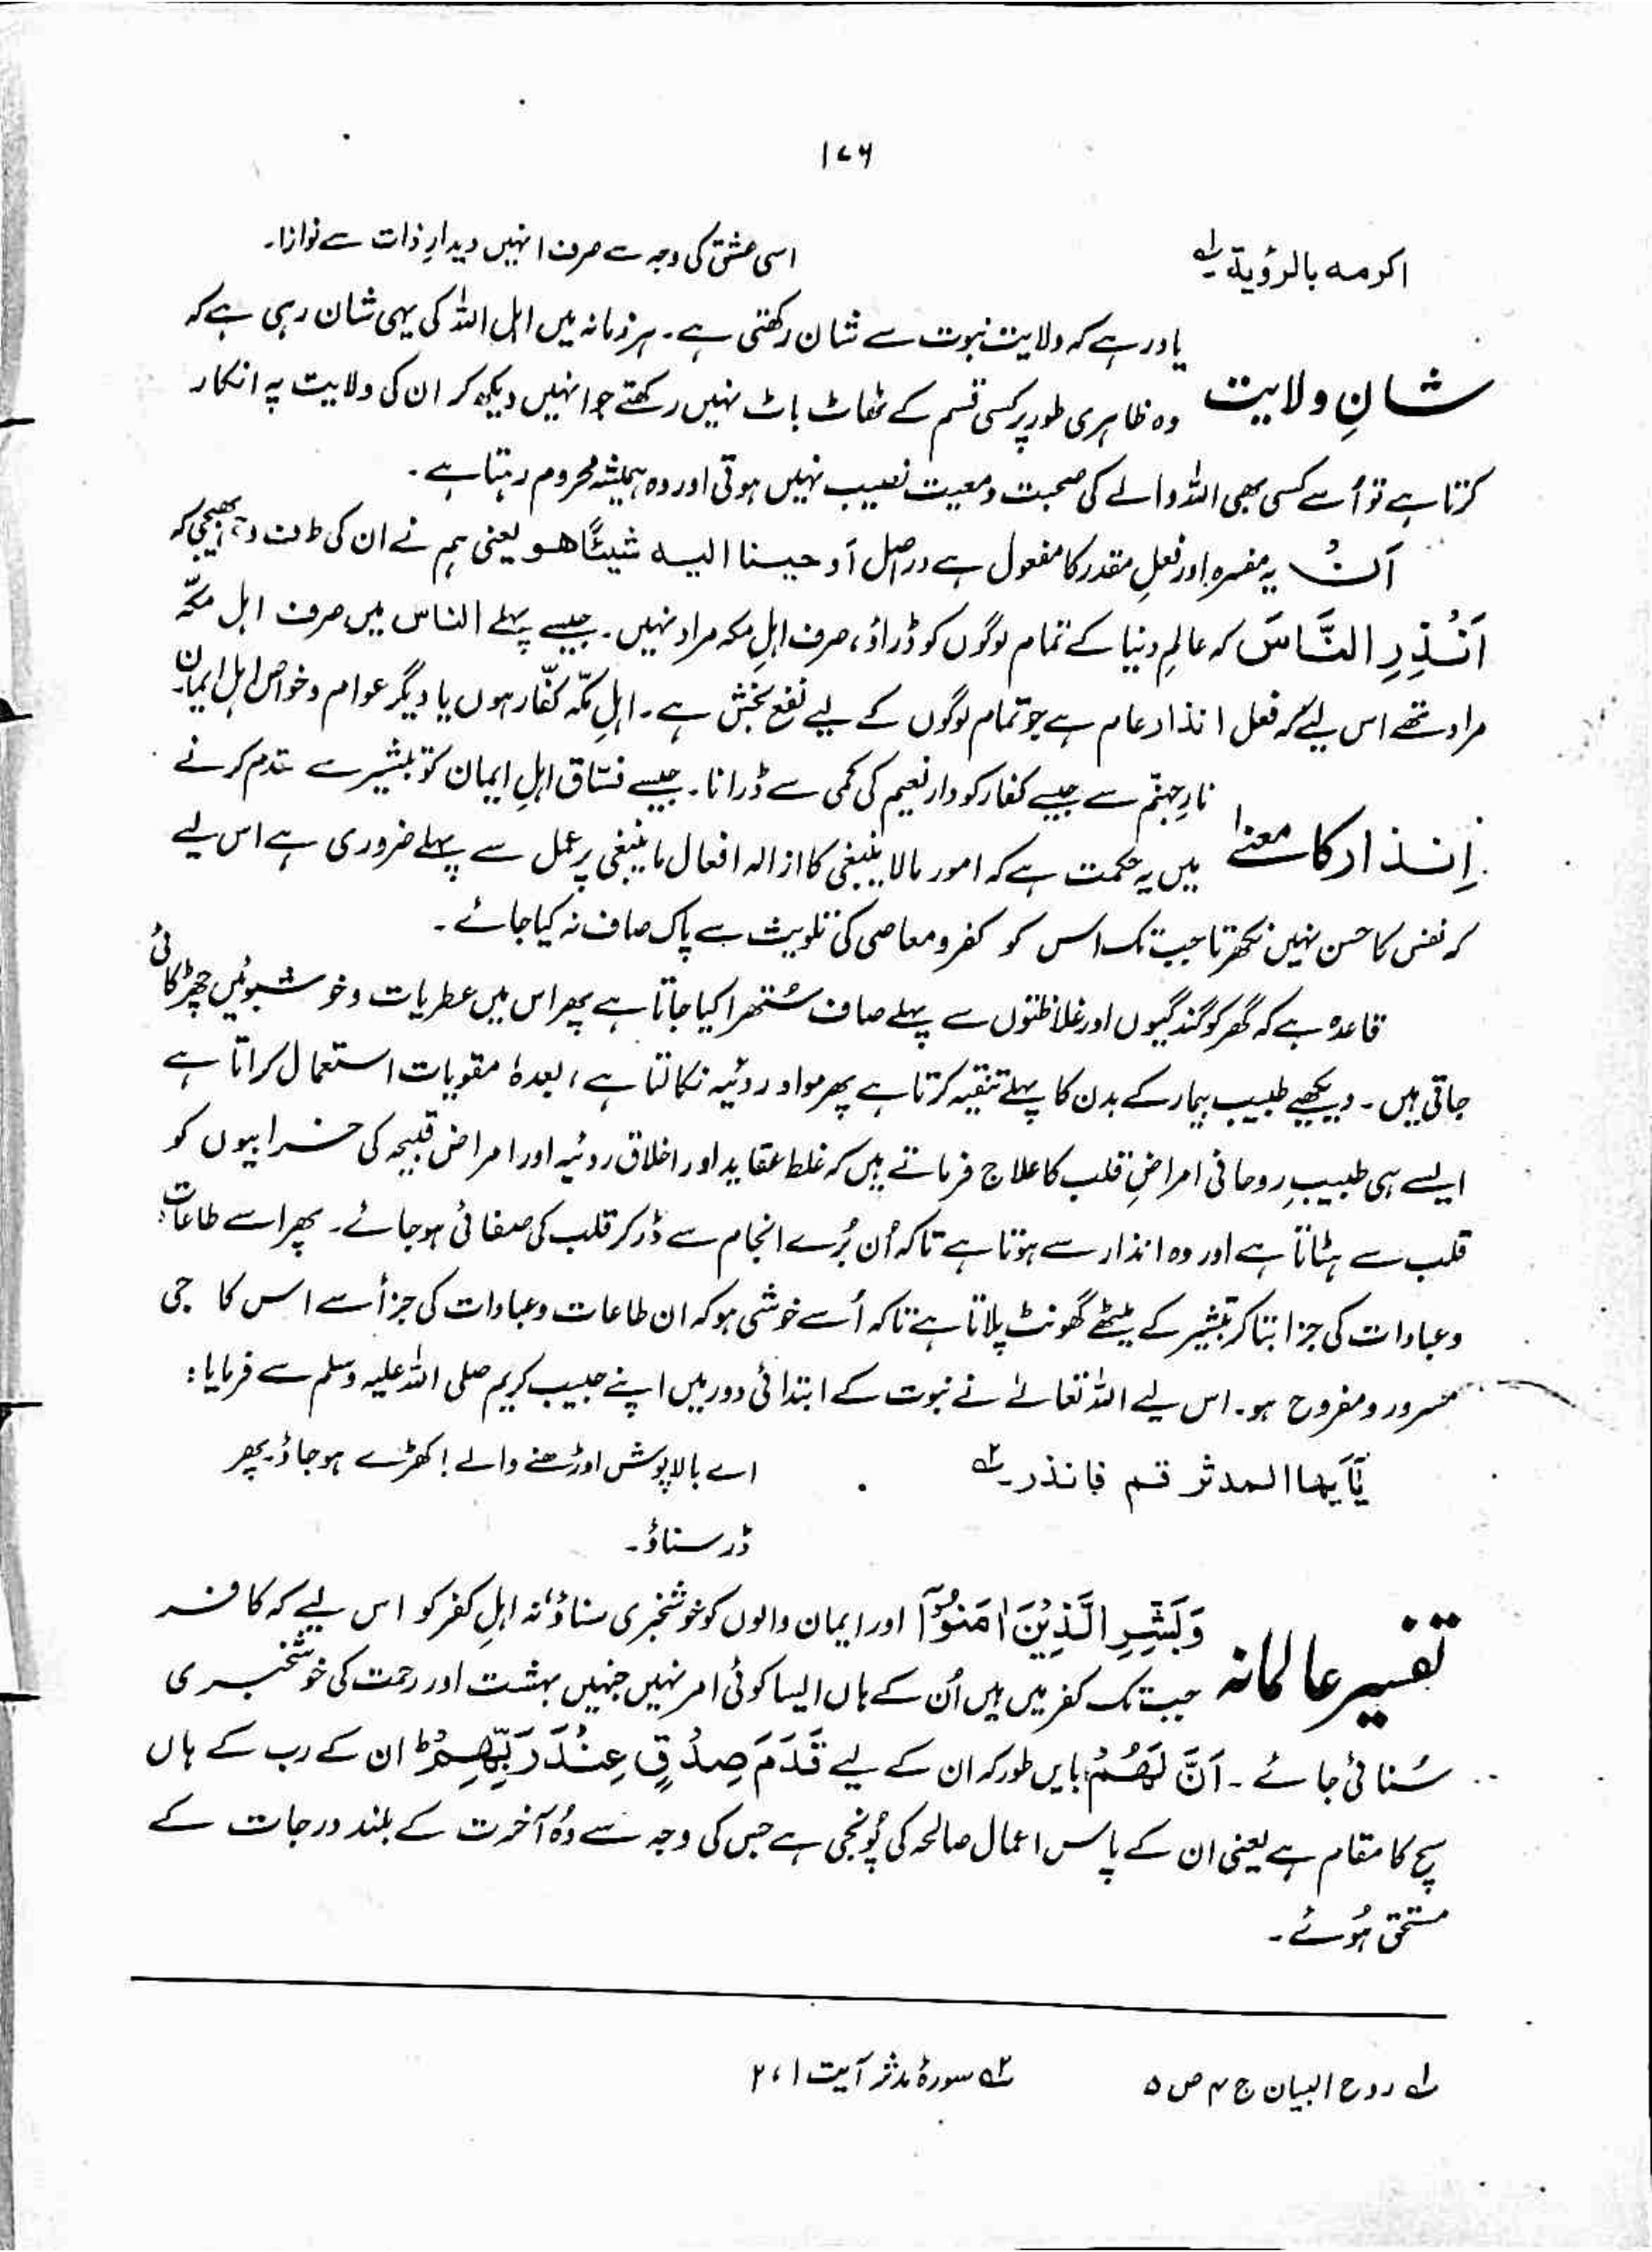 ۱۷۶
اکرمہ بالرؤیۃ ۱؎ اسی عشق کی وجہ سے صرف انہیں دیدارِ ذات سے نوازا۔
یاد رہے کہ ولایت نبوت سے شان رکھتی ہے۔ ہر زمانہ میں اہل اللہ کی یہی شان رہی ہے کہ
شانِ ولایت وہ ظاہری طور پر کسی قسم کے ٹھاٹ باٹ نہیں رکھتے جو انہیں دیکھ کر ان کی ولایت پہ انکار
کرتا ہے تو اُسے کسی بھی اللہ والے کی صحبت و معیت نصیب نہیں ہوتی اور وہ ہمیشہ محروم رہتا ہے۔
اَنْ یہ مفسرہ اور فعلِ مقدر کا مفعول ہے دراصل اَوحینا الیہ شیئًا ھو یعنی ہم نے ان کی طرف وحی بھیجی کہ
اَنْذِرِ النَّاسَ کہ عالمِ دنیا کے تمام لوگوں کو ڈراؤ، صرف اہلِ مکہ مراد نہیں۔ جیسے پہلے الناس میں صرف اہل مکّہ
مراد تھے اس لیے کہ فعل انذار عام ہے جو تمام لوگوں کے لیے نفع بخش ہے۔ اہلِ مکّہ کفّار ہوں یا دیگر عوام و خواص اہل ایمان۔
نارِ جہنّم سے جیسے کفار کو دار نعیم کی کمی سے ڈرانا۔ جیسے فسّاق اہلِ ایمان کو تبشیر سے مقدم کرنے
اِنذار کا معنیٰ میں یہ حکمت ہے کہ امور مالا ینبغی کا ازالہ افعال ما ینبغی پر عمل سے پہلے ضروری ہے اس لیے
کہ نفس کا حسن نہیں نکھرتا جب تک اس کو کفر و معاصی کی تلویث سے پاک صاف نہ کیا جائے۔
قاعدہ ہے کہ گھر کو گندگیوں اور غلاظتوں سے پہلے صاف سُتھرا کیا جاتا ہے پھر اس میں عطریات و خوشبوئیں چھڑکائی
جاتی ہیں۔ دیکھیے طبیب بیمار کے بدن کا پہلے تنقیہ کرتا ہے پھر مواد ردئیہ نکالتا ہے، بعدہٗ مقویات استعمال کراتا ہے
ایسے ہی طبیبِ روحانی امراضِ قلب کا علاج فرماتے ہیں کہ غلط عقاید اور اخلاق ردئیہ اور امراض قبیحہ کی خرابیوں کو
قلب سے ہٹاتا ہے اور وہ انذار سے ہوتا ہے تاکہ اُن بُرے انجام سے ڈر کر قلب کی صفائی ہو جائے۔ پھر اسے طاعات
و عبادات کی جزا بتا کر تبشیر کے میٹھے گھونٹ پلاتا ہے تاکہ اُسے خوشی ہو کہ ان طاعات و عبادات کی جزأ سے اس کا جی
مسرور و مفروح ہو۔ اس لیے اللہ تعالےٰ نے نبوت کے ابتدائی دور میں اپنے حبیب کریم صلی اللہ علیہ وسلم سے فرمایا :
یٰٓاَیھا المدثر قم فانذر ۲؎ اے بالاپوش اوڑھنے والے ! کھڑے ہو جاؤ۔ پھر
ڈر سناؤ۔
وَبَشِّرِ الَّذِیْنَ اٰمَنُوْٓا اور ایمان والوں کو خوشخبری سناؤ نہ اہلِ کفر کو اس لیے کہ کافر
تفسیر عالمانہ جب تک کفر میں ہیں اُن کے ہاں ایسا کوئی امر نہیں جنہیں بہشت اور رحمت کی خوشخبری
سُنائی جائے۔ اَنَّ لَھُمْ بایں طور کہ ان کے لیے قَدَمَ صِدْقٍ عِنْدَ رَبِّھِمْ ؕ ان کے رب کے ہاں
سچ کا مقام ہے یعنی ان کے پاس اعمال صالحہ کی پُونجی ہے جس کی وجہ سے وُہ آخرت کے بلند درجات کے
مستحق ہُوئے۔
۱؎ روح البیان ج ۴ ص ۵ ۲؎ سورۂ مدثر آیت ۱، ۲